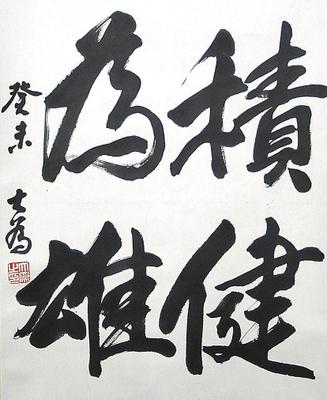 積健
為雄
癸未 大為